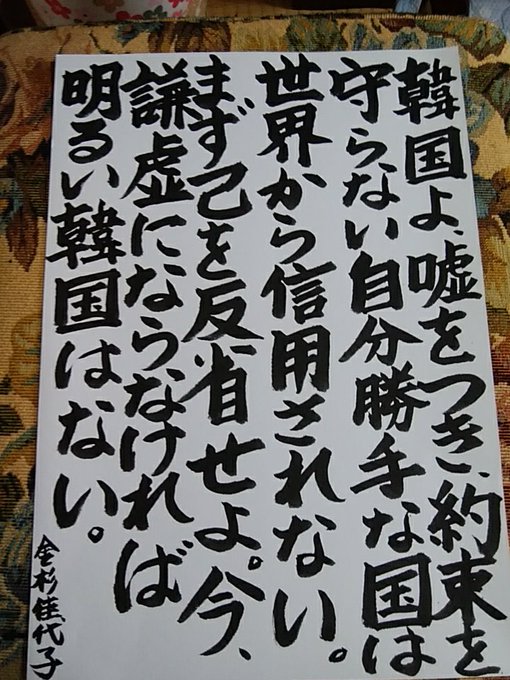 韓国よ、嘘をつき、約束を
守らない自分勝手な国は
世界から信用されない。
まず己を反省せよ。今、
謙虚にならなければ
明るい韓国はない。
金杉佳代子